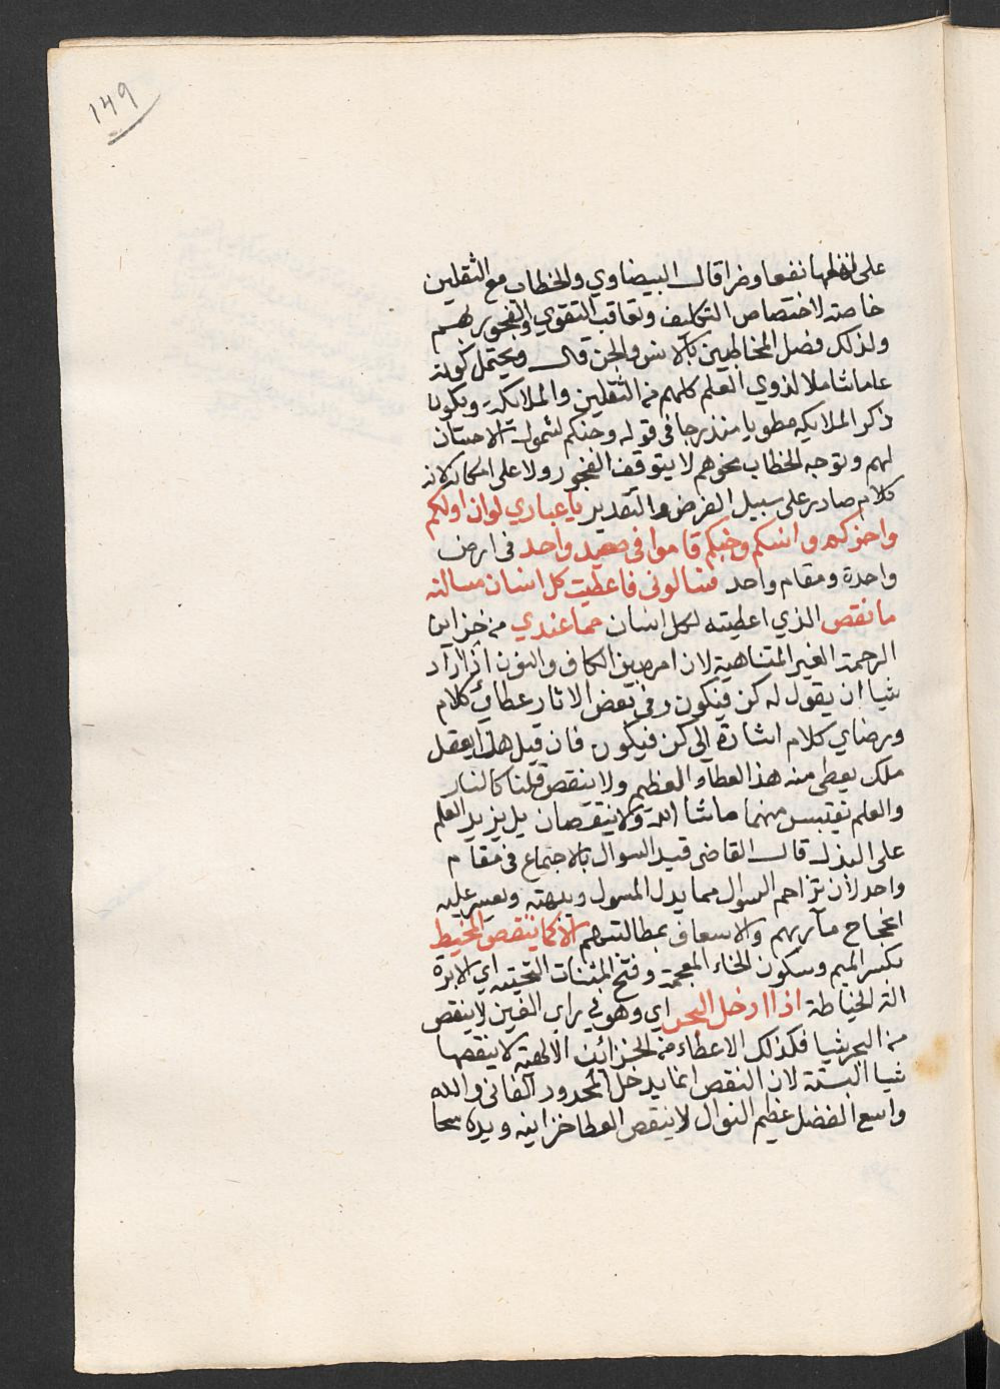 ١٤٩
على نفعا وضرا قال البيضاوي والخطاب مع الثقلين
خاصة لاختصاص التكليف وتعاقب التقوي والفجور بهم
ولذلك فصل المخاطبين بالانس والجن قال ويحتمل كونه
عاما شاملا لذوي العلم كلهم من الثقلين والملايكة ويكون
ذكر الملايكه مطويا مندرجا في قوله وجنكم لشمول الاجتنان
لهم وتوجه الخطاب نحوهم لا يتوقف الفجور ولا على امكانه لانه
كلام صادر على سبيل الفرض والتقدير يا عبادي لو ان اولكم
واخركم وانسكم وجنكم قاموا في صعيد واحد في ارض
واحدة ومقام واحد فسالوني فاعطيت كل انسان مسالته
ما نقص الذي اعطيته لكل انسان مما عندي من خزاين
الرحمة الغير المتناهية لان امره بين الكاف والنون اذا اراد
شيا ان يقول له كن فيكون وفي بعض الاثار عطاي كلام
ورضاي كلام اشارة الى كن فيكون فان قيل هل يعقل
ملك يعطى منه هذا العطاء العظيم ولا ينقص قلنا كالنار
والعلم تقتبس منهما ما شا الله ولا ينقصان بل يزيد العلم
على البذل قال القاضى قيد السوال بالاجتماع في مقام
واحد لان تزاحم السوال مما يدل المسول ويبهته ويعسر عليه
انجاح مآربهم والاسعاف بمطالبهم الا كما ينقص المخيط
بكسر الميم وسكون الخاء المعجمة وفتح المثنات التحتيه اي الابرة
الة الخياطة اذا ادخل البحر اي وهو في راي العين لا ينقص
من البحر شيا فكذلك الاعطاء من الخزائن الالهية لا ينقصها
شيا البتة لان النقص انما يدخل المحدود الفاني والله
واسع الفضل عظيم النوال لا ينقص العطا خزاينه ويده سحا